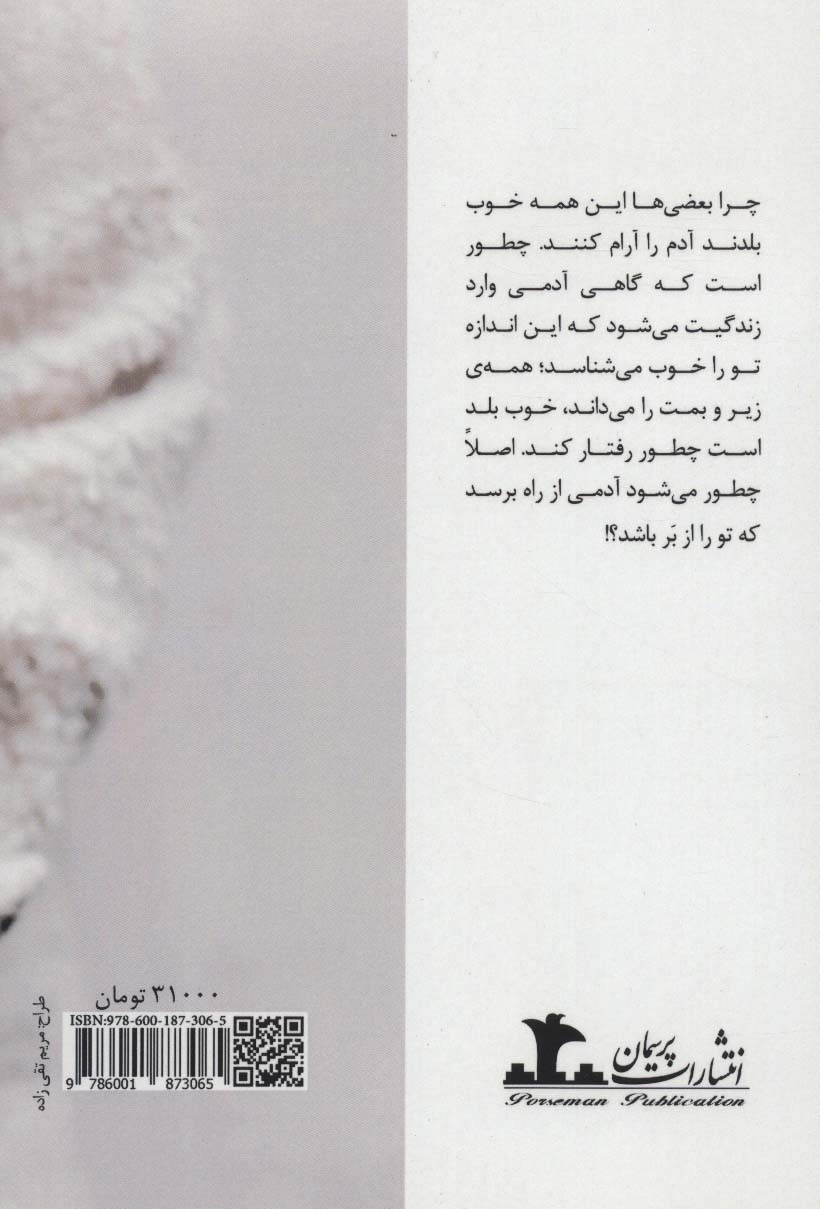 چرا بعضی‌ها این همه خوب
بلدند آدم را آرام کنند. چطور
است که گاهی آدمی وارد
زندگیت می‌شود که این اندازه
تو را خوب می‌شناسد؛ همه‌ی
زیر و بمت را می‌داند، خوب بلد
است چطور رفتار کند. اصلاً
چطور می‌شود آدمی از راه برسد
که تو را از بَر باشد؟!
انتشارات پرسمان
Porseman Publication
۳۱۰۰۰ تومان
ISBN:978-600-187-306-5
9 786001 873065
طراح: مریم تقی زاده